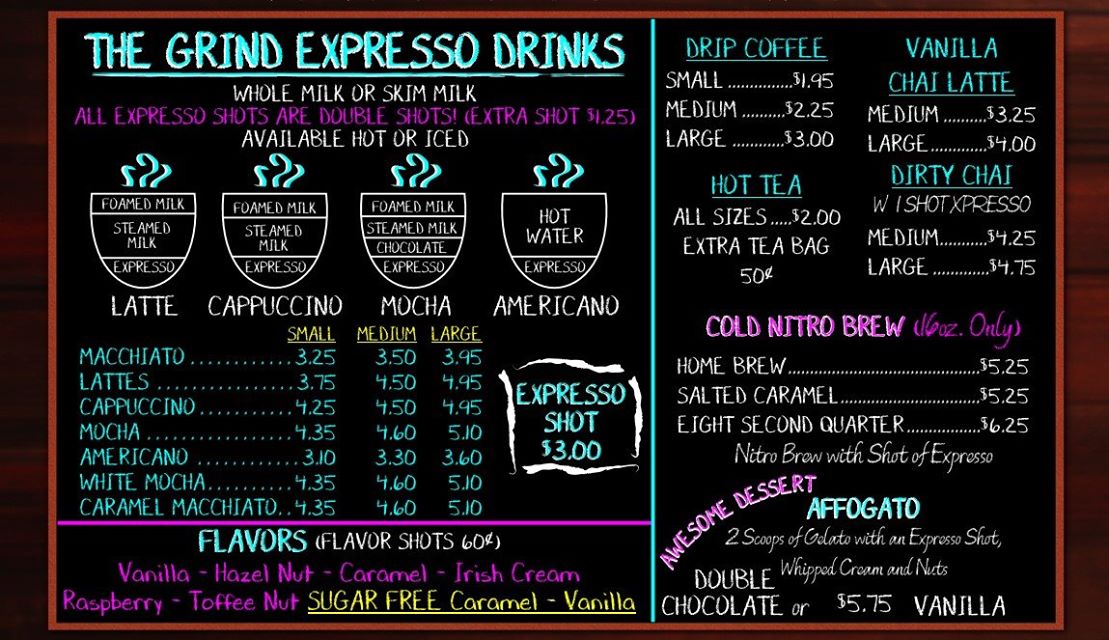 THE GRIND EXPRESSO DRINKS
WHOLE MILK OR SKIM MILK
ALL EXPRESSO SHOTS ARE DOUBLE SHOTS! (EXTRA SHOT $1.25)
AVAILABLE HOT OR ICED
FOAMED MILK
STEAMED
MILK
EXPRESSO
LATTE
FOAMED MILK
STEAMED
MILK
EXPRESSO
CAPPUCCINO
FOAMED MILK
STEAMED MILK
CHOCOLATE
EXPRESSO
MOCHA
HOT
WATER
EXPRESSO
AMERICANO
SMALL MEDIUM LARGE
MACCHIATO............3.25 3.50 3.95
LATTES ................3.75 4.50 4.95
CAPPUCCINO...........4.25 4.50 4.95
MOCHA .................4.35 4.60 5.10
AMERICANO ............3.10 3.30 3.60
WHITE MOCHA..........4.35 4.60 5.10
CARAMEL MACCHIATO..4.35 4.60 5.10
EXPRESSO
SHOT
$3.00
FLAVORS (FLAVOR SHOTS 60¢)
Vanilla - Hazel Nut - Caramel - Irish Cream
Raspberry - Toffee Nut SUGAR FREE Caramel - Vanilla
DRIP COFFEE
SMALL ...............$1.95
MEDIUM ..........$2.25
LARGE ............$3.00
HOT TEA
ALL SIZES.....$2.00
EXTRA TEA BAG
50¢
VANILLA
CHAI LATTE
MEDIUM ..........$3.25
LARGE............$4.00
DIRTY CHAI
W 1 SHOT XPRESSO
MEDIUM...........$4.25
LARGE .............$4.75
COLD NITRO BREW (16oz. Only)
HOME BREW............................................$5.25
SALTED CARAMEL................................$5.25
EIGHT SECOND QUARTER.................$6.25
Nitro Brew with Shot of Expresso
AWESOME DESSERT
AFFOGATO
2 Scoops of Gelato with an Expresso Shot,
Whipped Cream and Nuts
DOUBLE
CHOCOLATE or $5.75 VANILLA